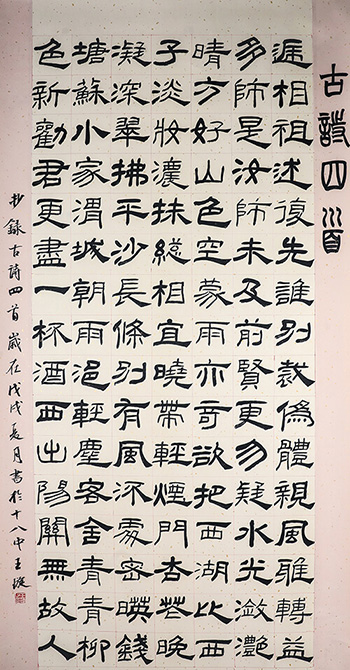 古詩四首
遞相祖述復先誰別裁偽體親風雅轉益
多師是汝師未及前賢更勿疑水光瀲灩
晴方好山色空蒙雨亦奇欲把西湖比西
子淡妝濃抹總相宜曉帶輕煙門杏花晚
凝深翠拂平沙長條別有風流處密映錢
塘蘇小家渭城朝雨浥輕塵客舍青青柳
色新勸君更盡一杯酒西出陽關無故人
抄錄古詩四首歲在戊戌夏月書於十八中王璇